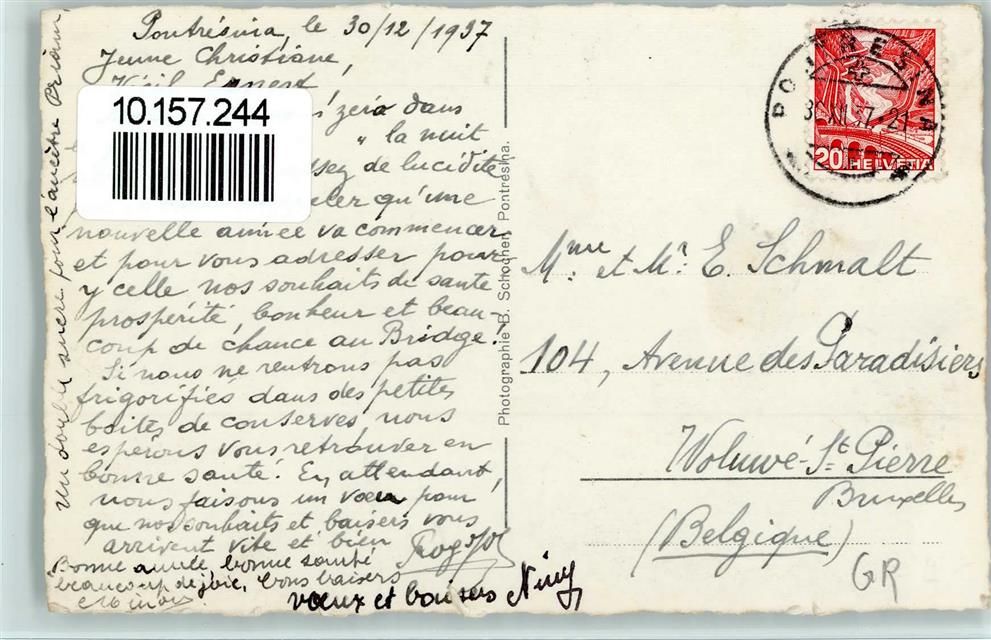 Pontrésina, le 30/12/1937
Jeune Christiane,
10.157.244
zéro dans
" la nuit
ssez de lucidité
eler qu'une
nouvelle année va commencer
et pour vous adresser pour
y celle nos souhaits de santé
prospérité, bonheur et beau
coup de chance au Bridge!
Si nous ne rentrons pas
frigorifiés dans des petites
boîtes de conserves, nous
espérons vous retrouver en
bonne santé! En attendant,
nous faisons un vœu pour
que nos souhaits et baisers vous
arrivent vite et bien
Bonne année, bonne santé
beaucoup de joie, bons baisers
vœux et baisers
Un double sucre pour l'ancêtre
Photographie B. Schocher, Pontresina.
PONTRESINA
20 HELVETIA
Mme et Mr. E. Schmalt
104, Avenue des Paradisiers
Woluwé-St Pierre
Bruxelles
(Belgique)
GR